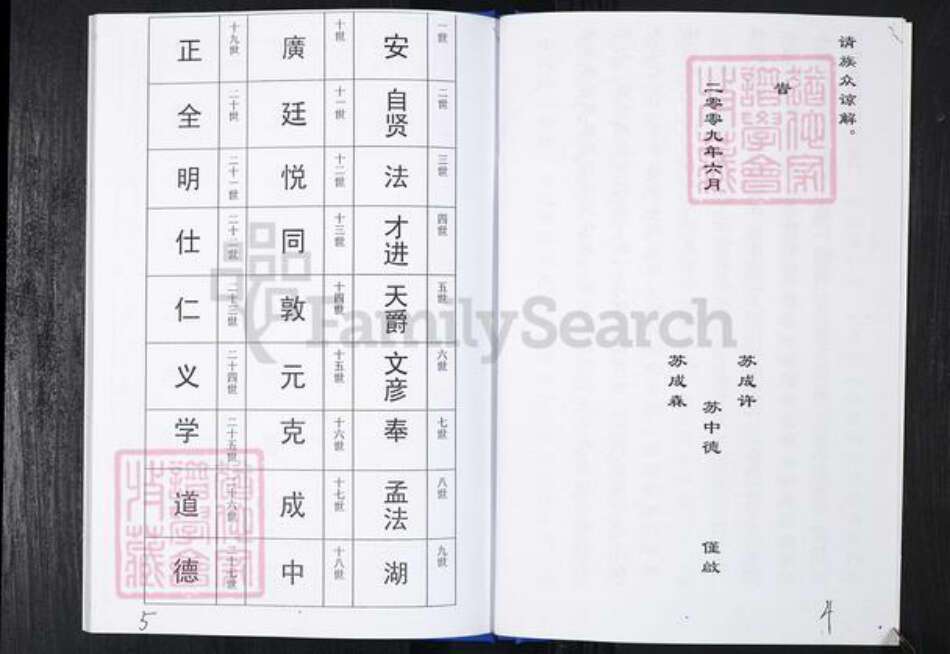 请族众谅解。
告
二零零九年六月
苏成许
苏中德
苏成森
僅啟
4
一世 安
二世 自贤
三世 法
四世 才进
五世 天爵
六世 文彦
七世 奉
八世 孟法
九世 湖
十世 廣
十一世 廷
十二世 悦
十三世 同
十四世 敦
十五世 元
十六世 克
十七世 成
十八世 中
十九世 正
二十世 全
二十一世 明
二十二世 仕
二十三世 仁
二十四世 义
二十五世 学
二十六世 道
二十七世 德
5
FamilySearch